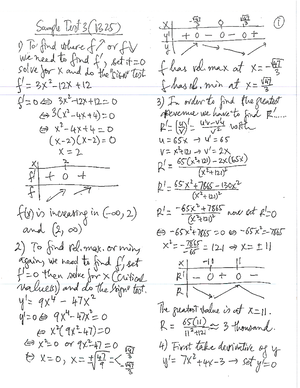 Sample Test 3 (1325)
1) To find where f↗ or f↘
we need to find f', set it = 0
solve for x and do the sign test
f' = 3x²-12x+12
f'=0 ⇔ 3x²-12x+12=0
⇔ 3(x²-4x+4)=0
⇔ x²-4x+4=0
(x-2)(x-2)=0
x=2
x 2
f' + 0 +
f
f(x) is increasing in (-∞, 2)
and (2, ∞)
2) To find rel. max. or min.
again we need to find f', set
f'=0 then solve for x (critical
values) and do the sign test.
y' = 9x⁴ - 47x²
y'=0 ⇔ 9x⁴-47x²=0
⇔ x²(9x²-47)=0
⇔ x²=0 or 9x²-47=0
⇔ x=0, x=±√47/9 = √47/3
-√47/3
①
x -√47/3 0 √47/3
y' + 0 - 0 - 0 +
y
f has rel. max at x = -√47/3
f has rel. min at x = √47/3
3) In order to find the greatest
revenue we have to find R'......
R' = (u/v)' = u'v-uv'/v² with
u=65x → u'=65
v=x²+121 → v'=2x
R' = 65(x²+121)-2x(65x)/(x²+121)²
R' = 65x²+7865-130x²/(x²+121)²
R' = -65x²+7865/(x²+121)² now set R'=0
⇔ -65x²+7865=0 ⇔ -65x²=-7865
x² = -7865/-65 = 121 ⇔ x=±11
x -11 11
R' - 0 + 0 -
R
The greatest value is at x=11.
R = 65(11)/11²+121 ≈ 3 thousand.
4) First take derivative of y
y' = 7x²+4x-3 → set y'=0